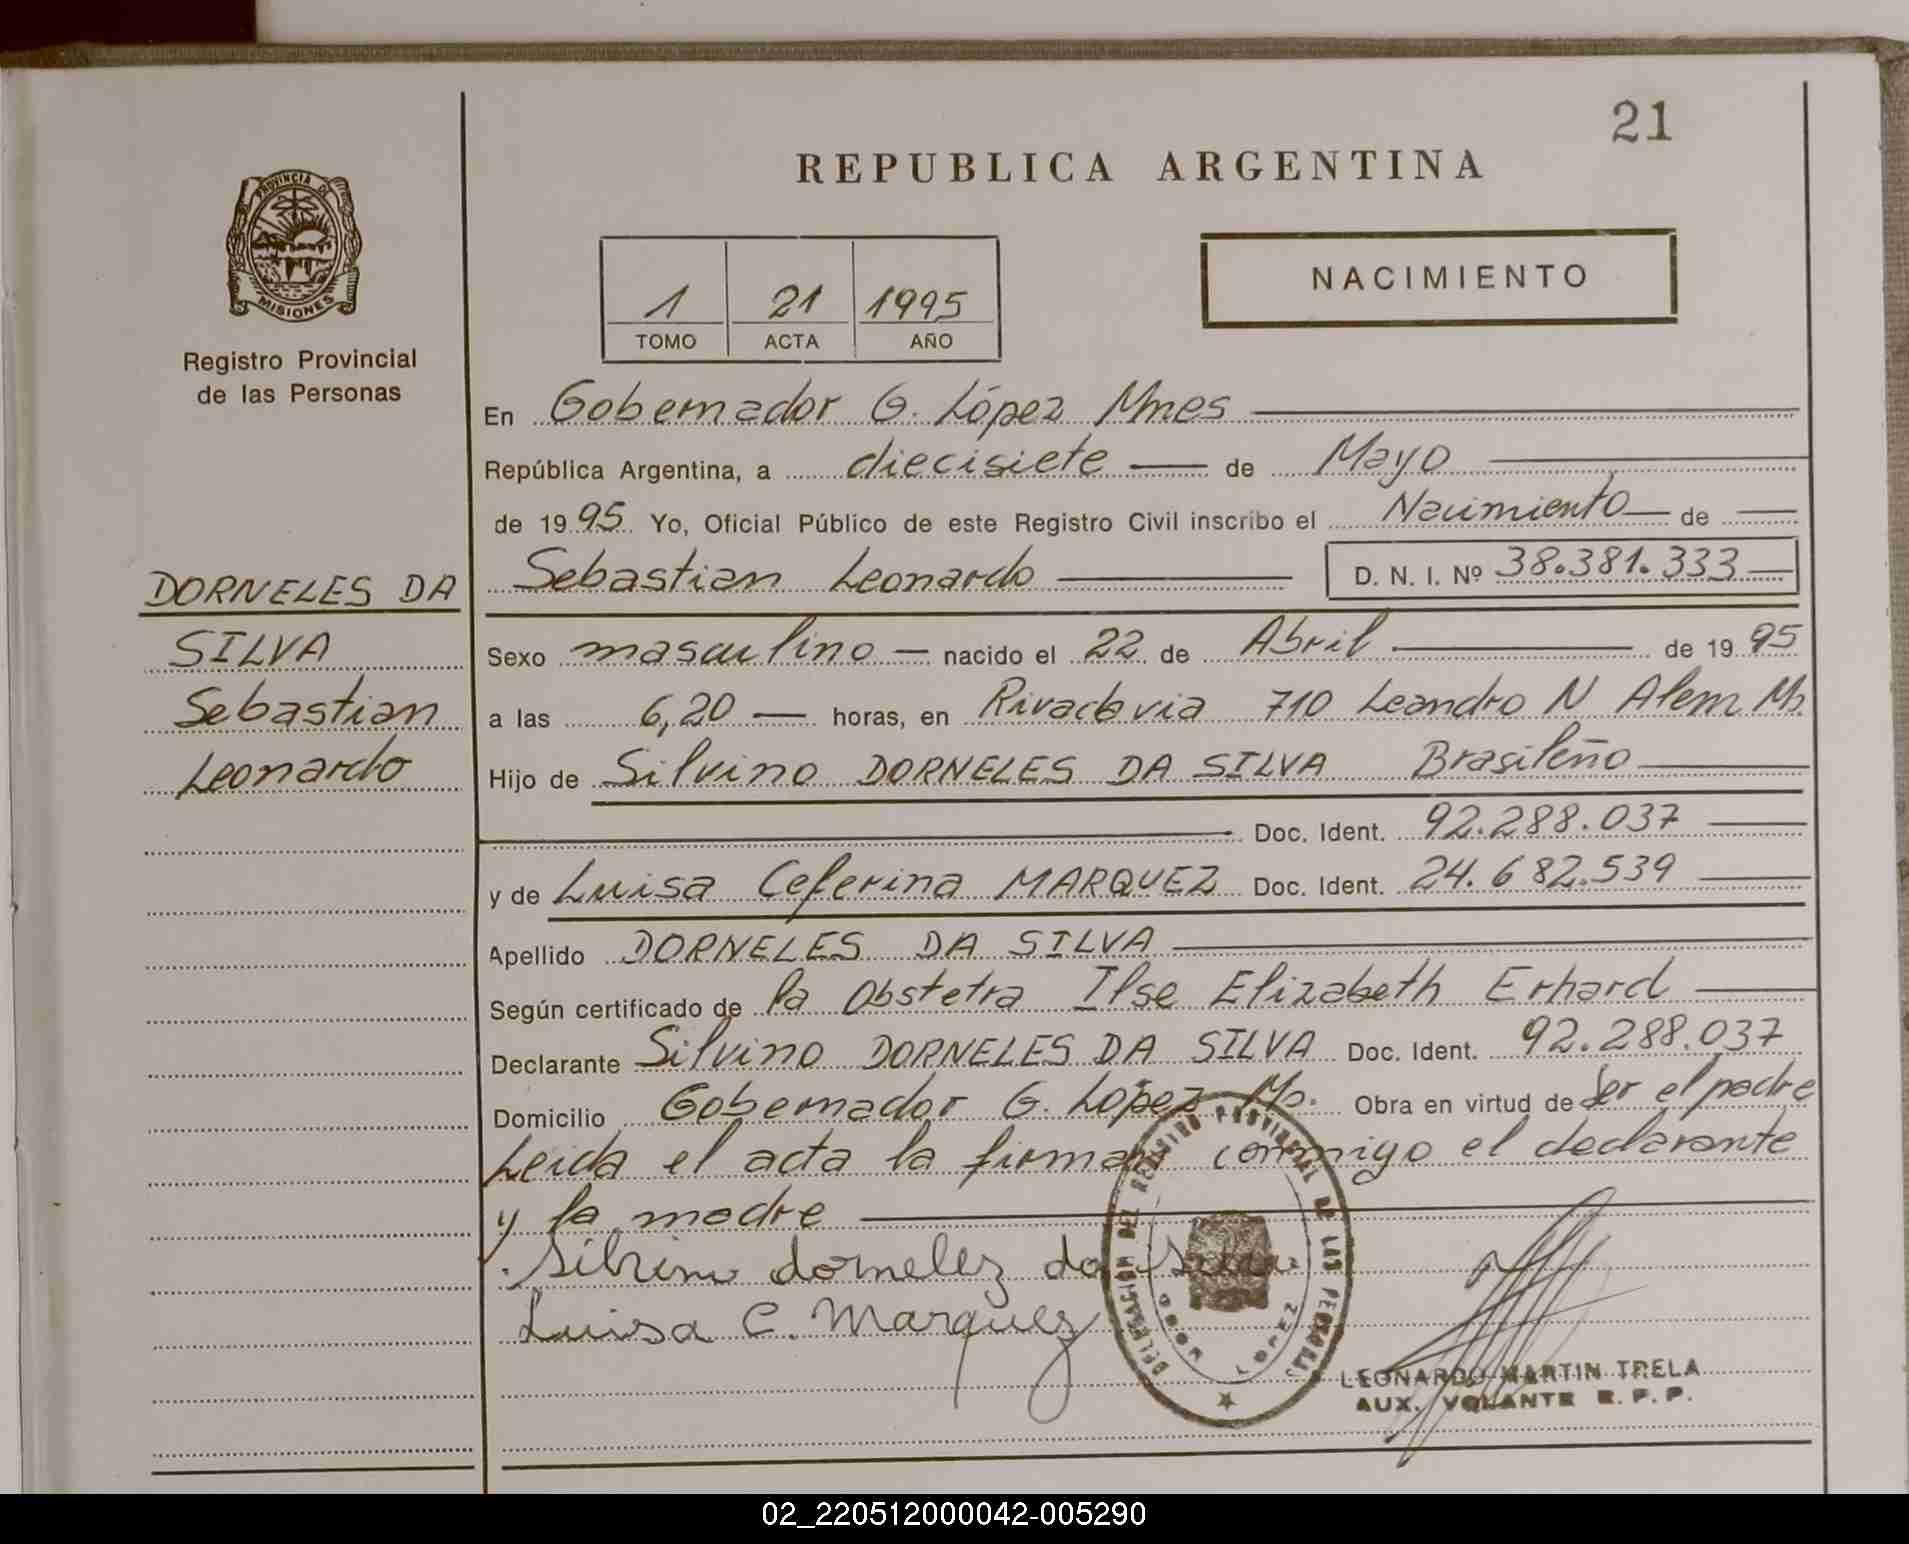 21
REPUBLICA ARGENTINA
PROVINCIA DE
MISIONES
Registro Provincial
de las Personas
NACIMIENTO
1 21 1995
TOMO ACTA AÑO
En Gobernador G. López Mnes
República Argentina, a diecisiete de Mayo
de 1995 Yo, Oficial Público de este Registro Civil inscribo el Nacimiento de
Sebastian Leonardo D. N. I. Nº 38.381.333
DORNELES DA
SILVA
Sebastian
Leonardo
Sexo masculino nacido el 22 de Abril de 1995
a las 6,20 horas, en Rivadavia 710 Leandro N Alem Ms.
Hijo de Silvino DORNELES DA SILVA Brasileño
Doc. Ident. 92.288.037
y de Luisa Ceferina MARQUEZ Doc. Ident. 24.682.539
Apellido DORNELES DA SILVA
Según certificado de la Obstetra Ilse Elizabeth Erhard
Declarante Silvino DORNELES DA SILVA Doc. Ident. 92.288.037
Domicilio Gobernador G. López Ms. Obra en virtud de Ser el padre
Leida el acta la firman conmigo el declarante
y la madre
Silvino dornelez da Silva
Luisa C. Marquez
DELEGACION DEL REGISTRO PROVINCIAL DE LAS PERSONAS
GDOR LOPEZ
LEONARDO MARTIN TRELA
AUX. VOLANTE R. P. P.
02_220512000042-005290